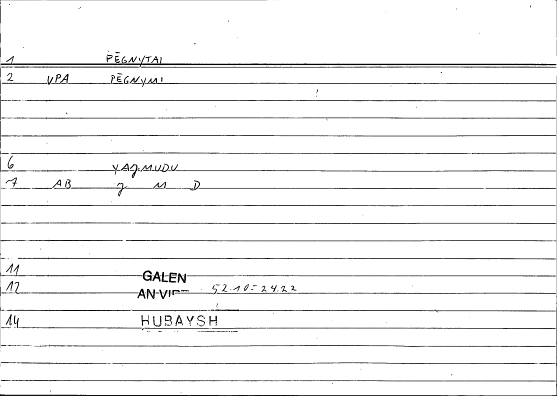 1 PĒGNYTAI
2 VPA PĒGNYMI
6 YAGMUDU
7 AB g M D
11 GALEN
12 AN VIRT 52.10=24.22
14 HUBAYSH